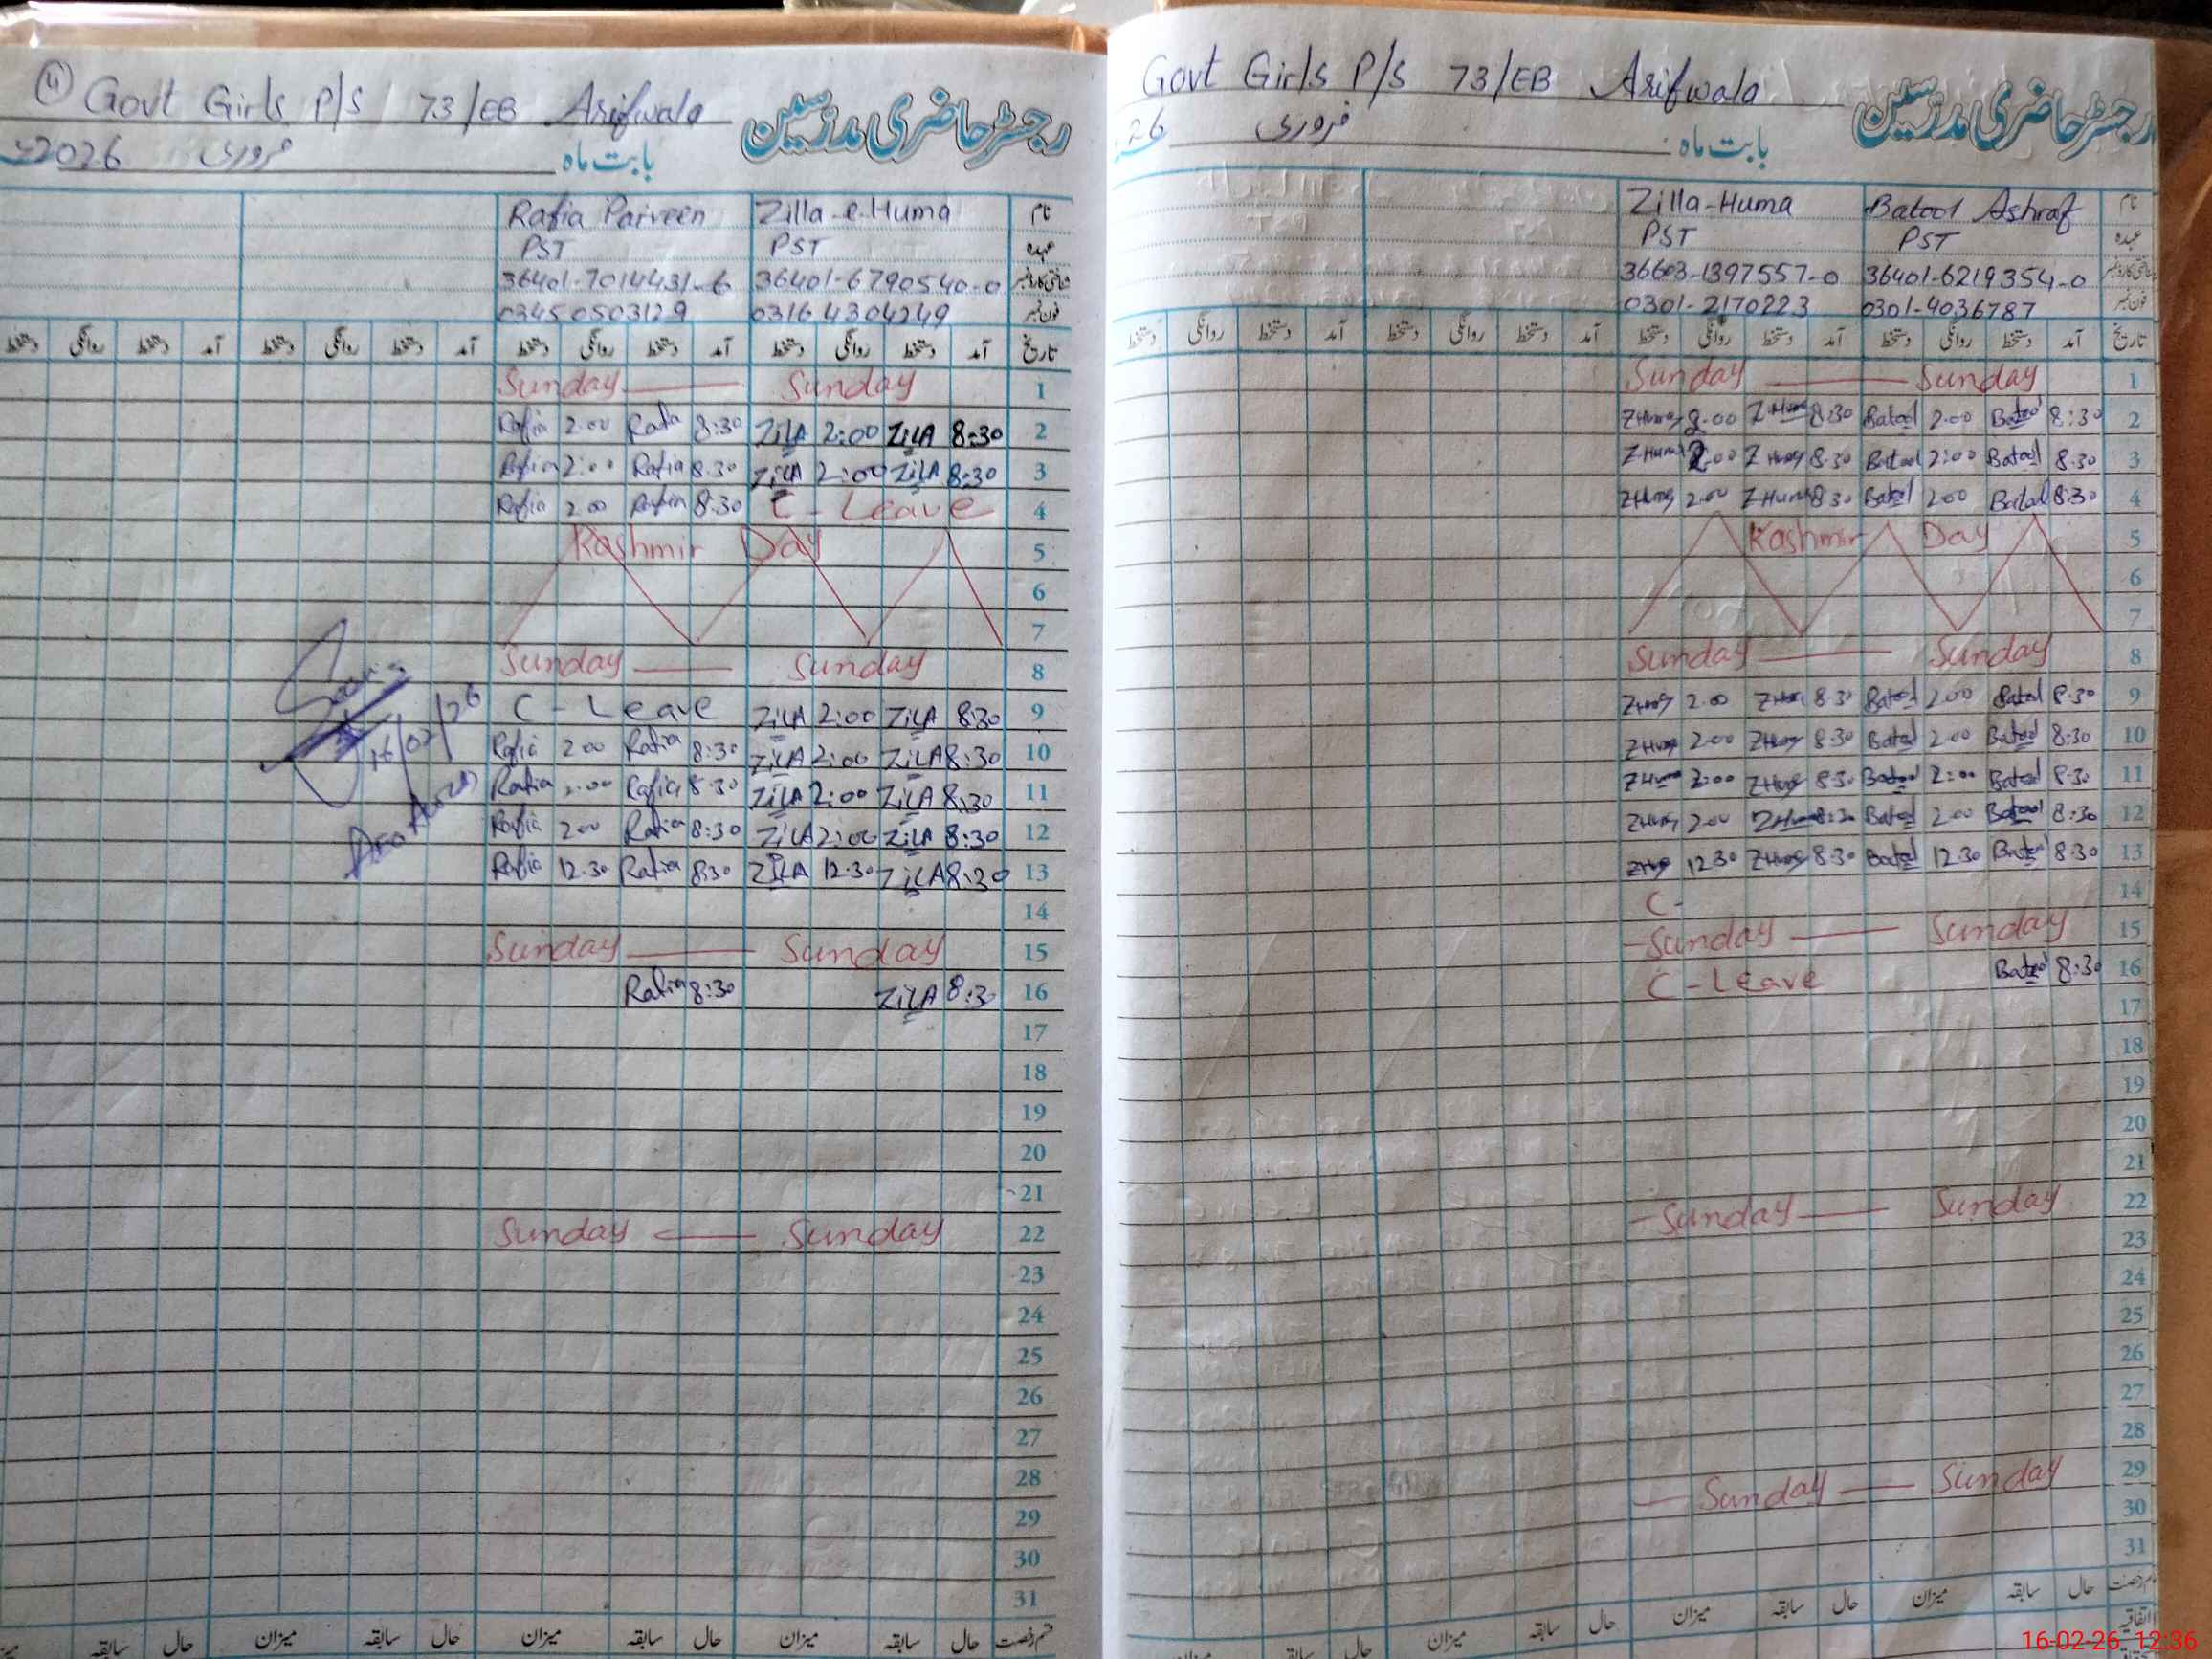 ④ Govt Girls P/S 73/EB Arifwala رجسٹر حاضری مدرسین
بابت ماہ فروری 2026ء
نام Zilla-e-Huma Rafia Parveen
عہدہ PST PST
شناختی کارڈ نمبر 36401-6790540-0 36401-7014431-6
فون نمبر 03164304249 03450503129
تاریخ آمد دستخط روانگی دستخط آمد دستخط روانگی دستخط آمد دستخط روانگی دستخط آمد دستخط روانگی دستخط
Sunday — Sunday 1
Rafia 2:00 Rafia 8:30 ZillA 2:00 ZillA 8:30 2
Rafia 2:00 Rafia 8:30 ZillA 2:00 ZillA 8:30 3
Rafia 2:00 Rafia 8:30 C-Leave 4
Kashmir Day 5
6
7
Sunday — Sunday 8
C-Leave ZillA 2:00 ZillA 8:30 9
Rafia 2:00 Rafia 8:30 ZillA 2:00 ZillA 8:30 10
Rafia 2:00 Rafia 8:30 ZillA 2:00 ZillA 8:30 11
Rafia 2:00 Rafia 8:30 ZillA 2:00 ZillA 8:30 12
Rafia 12:30 Rafia 8:30 ZillA 12:30 ZillA 8:30 13
16/02/26
14
Sunday — Sunday 15
Rafia 8:30 ZillA 8:30 16
17
18
19
20
21
Sunday — Sunday 22
23
24
25
26
27
28
29
30
31
قسم رخصت حال سابقہ میزان حال سابقہ میزان حال سابقہ میزان حال سابقہ
Govt Girls P/S 73/EB Arifwala رجسٹر حاضری مدرسین
بابت ماہ فروری 26
نام Batool Ashraf Zilla-Huma
عہدہ PST PST
شناختی کارڈ نمبر 36401-6219354-0 36603-1397557-0
فون نمبر 0301-4036787 0301-2170223
تاریخ آمد دستخط روانگی دستخط آمد دستخط روانگی دستخط آمد دستخط روانگی دستخط آمد دستخط روانگی دستخط
Sunday — Sunday 1
ZHuma 2:00 ZHuma 8:30 Batool 2:00 Batool 8:30 2
ZHuma 2:00 ZHuma 8:30 Batool 2:00 Batool 8:30 3
ZHuma 2:00 ZHuma 8:30 Batool 2:00 Batool 8:30 4
Kashmir Day 5
6
7
Sunday — Sunday 8
ZHuma 2:00 ZHuma 8:30 Batool 2:00 Batool 8:30 9
ZHuma 2:00 ZHuma 8:30 Batool 2:00 Batool 8:30 10
ZHuma 2:00 ZHuma 8:30 Batool 2:00 Batool 8:30 11
ZHuma 2:00 ZHuma 8:30 Batool 2:00 Batool 8:30 12
ZHuma 12:30 ZHuma 8:30 Batool 12:30 Batool 8:30 13
C- 14
Sunday — Sunday 15
C-Leave Batool 8:30 16
17
18
19
20
21
Sunday — Sunday 22
23
24
25
26
27
28
Sunday — Sunday 29
30
31
حال سابقہ میزان حال سابقہ میزان حال سابقہ میزان حال سابقہ
اتفاقیہ
16-02-26, 12:36